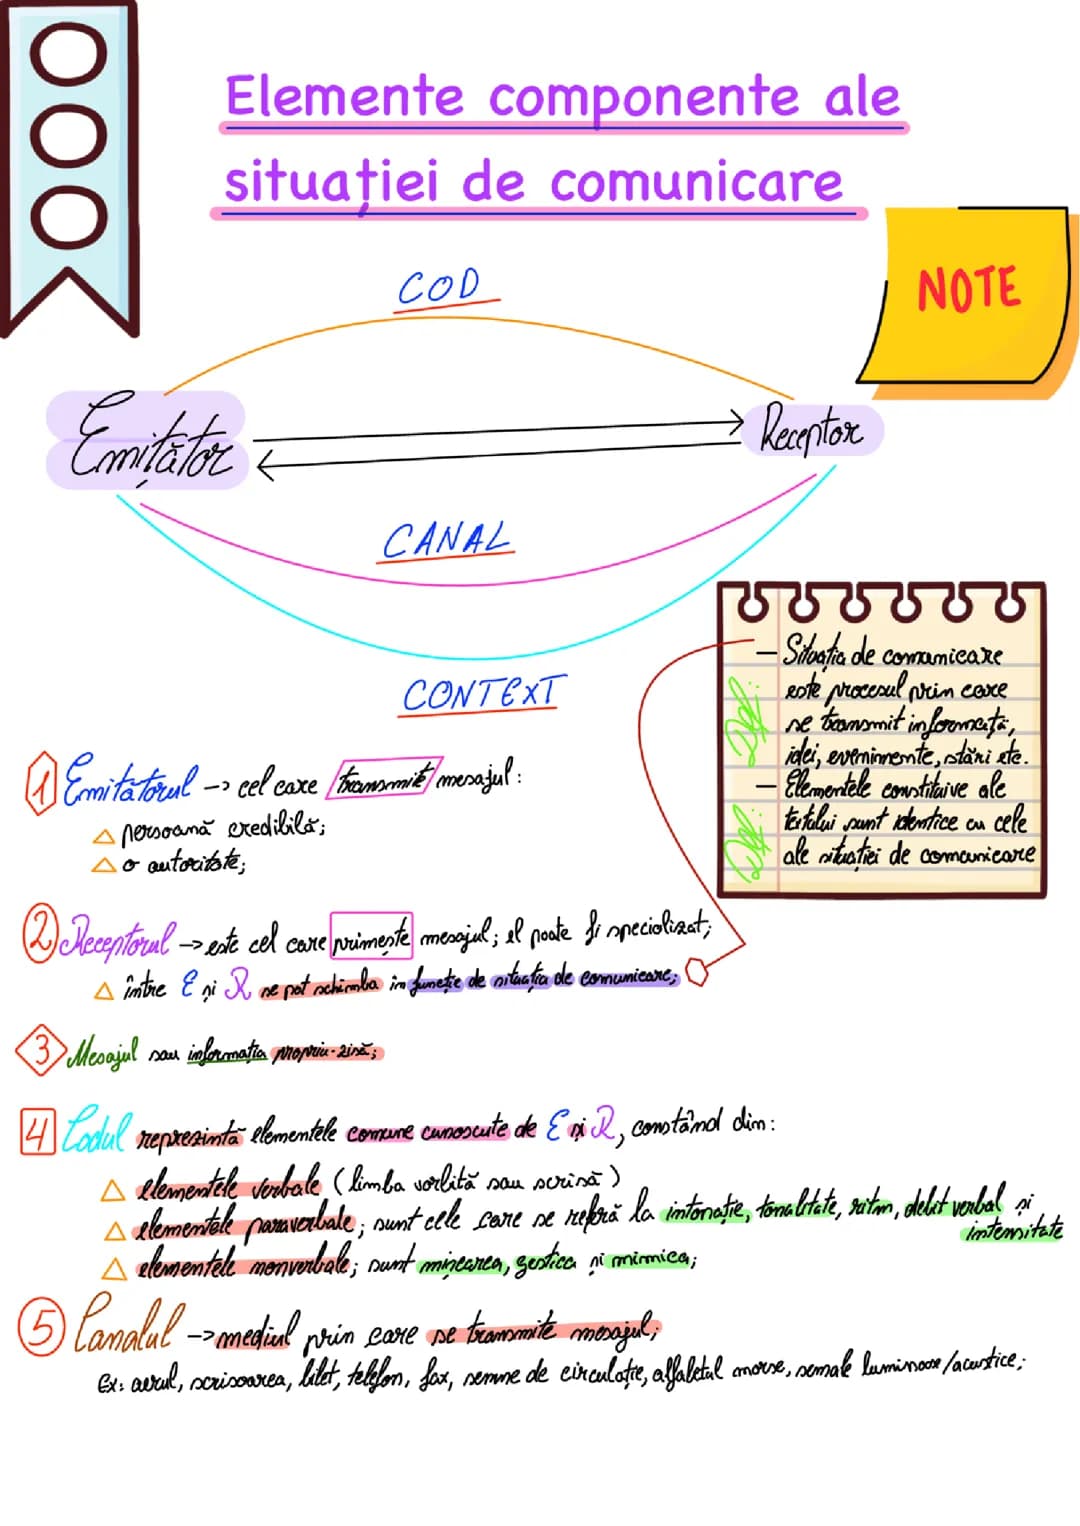 Elemente componente ale
situației de comunicare
NOTE
COD
Emițător
Receptor
CANAL
CONTEXT
Def:
— Situația de comunicare
este procesul prin care
se transmit informații,
idei, evenimente, stări etc.
Def:
— Elementele constituive ale
textului sunt identice cu cele
ale situației de comunicare
1 Emițătorul -> cel care transmite mesajul:
△ persoană credibilă;
△ o autoritate;
2 Receptorul -> este cel care primește mesajul; el poate fi specializat;
△ între E și R se pot schimba în funcție de situația de comunicare;
3 Mesajul sau informația propriu-zisă;
4 Codul reprezintă elementele comune cunoscute de E și R, constând din:
△ elementele verbale (limba vorbită sau scrisă)
△ elementele paraverbale; sunt cele care se referă la intonație, tonalitate, ritm, debit verbal și
intensitate
△ elementele nonverbale; sunt mișcarea, gestica și mimica;
5 Canalul -> mediul prin care se transmite mesajul;
Ex: aerul, scrisoarea, bilet, telefon, fax, semne de circulație, alfabetul morse, semale luminoase/acustice;